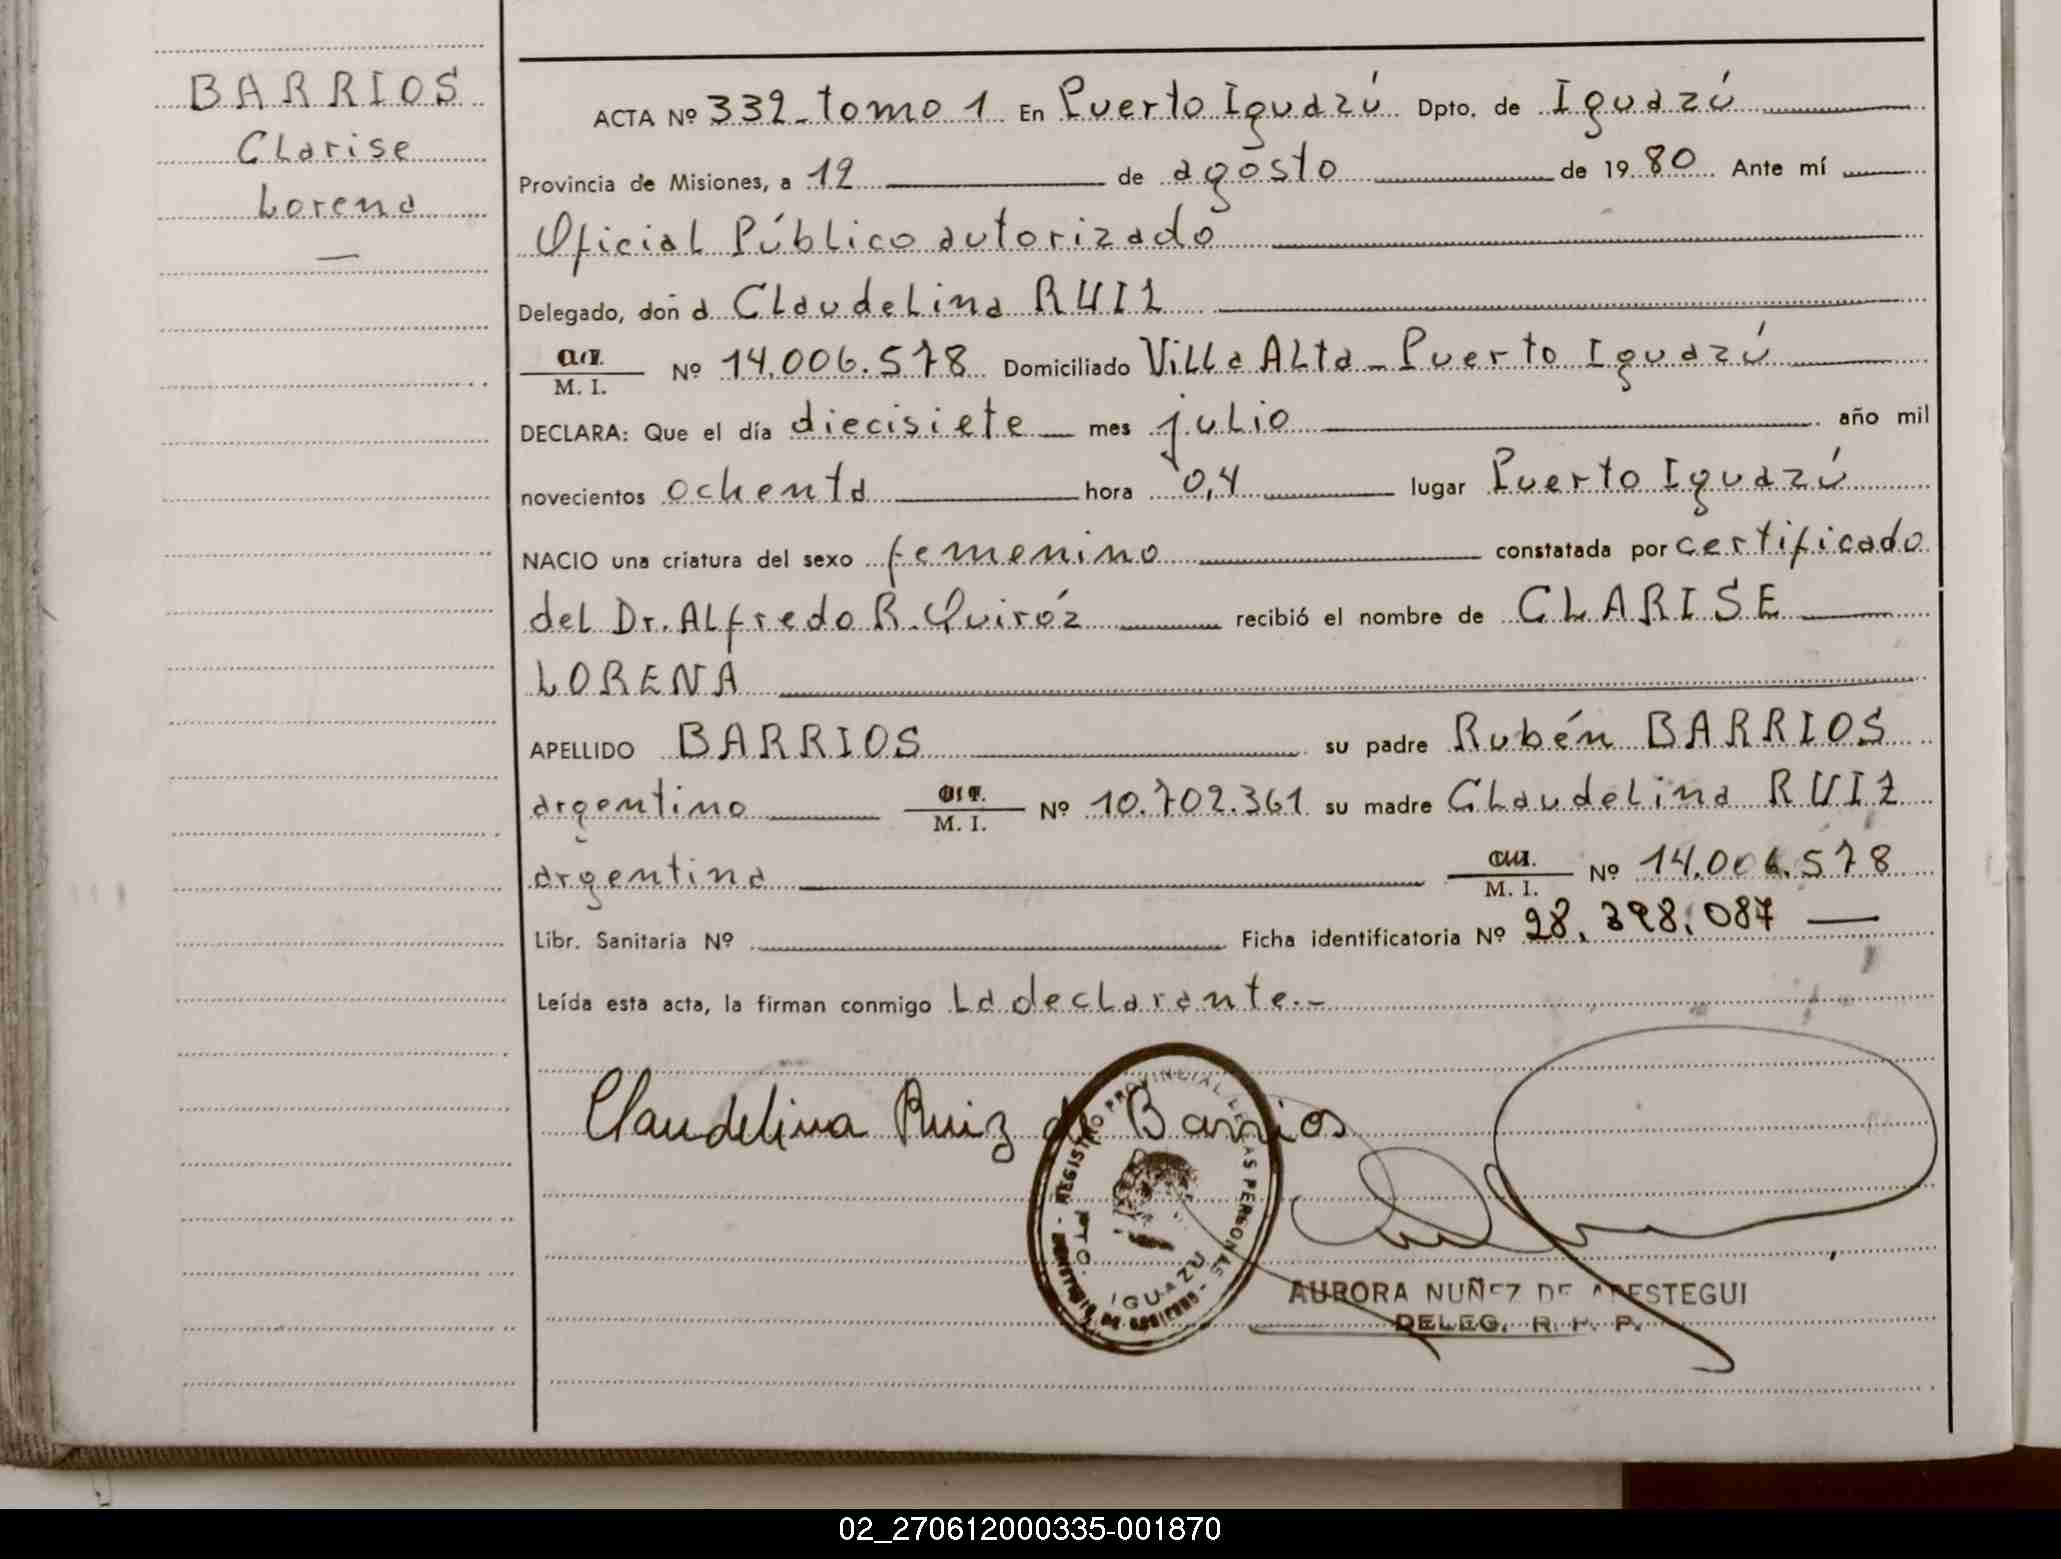 BARRIOS
Clarise
Lorena
ACTA Nº 332 - tomo 1 En Puerto Iguazú Dpto. de Iguazú
Provincia de Misiones, a 12 de agosto de 1980 Ante mí
Oficial Público autorizado
Delegado, don a Claudelina RUIZ
M. I. Nº 14.006.578 Domiciliado Villa Alta - Puerto Iguazú
DECLARA: Que el día diecisiete mes julio año mil
novecientos ochenta hora 0,4 lugar Puerto Iguazú
NACIO una criatura del sexo femenino constatada por certificado
del Dr. Alfredo R. Quiróz recibió el nombre de CLARISE
LORENA
APELLIDO BARRIOS su padre Rubén BARRIOS
argentino M. I. Nº 10.702.361 su madre Claudelina RUIZ
argentina M. I. Nº 14.006.578
Libr. Sanitaria Nº Ficha identificatoria Nº 28.398.087
Leída esta acta, la firman conmigo La declarante.-
Claudelina Ruiz de Barrios
REGISTRO PROVINCIAL DE LAS PERSONAS
PTO. IGUAZU
AURORA NUÑEZ DE ARESTEGUI
DELEG. R. P. P.
02_270612000335-001870